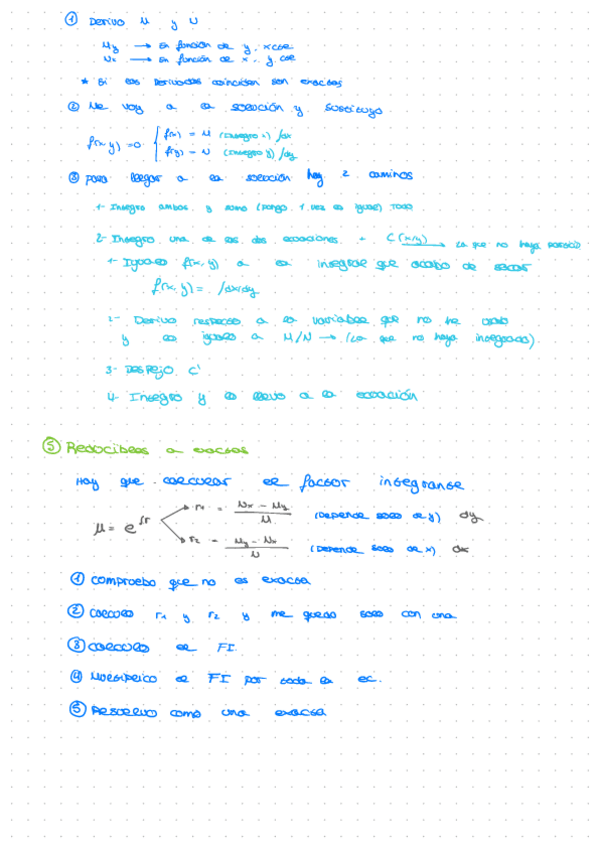 ① Derivo M y N
My → En función de y, x cte
Nx → En función de x, y cte
* Si las derivadas coinciden son exactas
② Me voy a la solución y sustituyo
f(x,y)=0 { f(x) = M (integro x) ∫dx
f(y) = N (integro y) ∫dy
③ Para llegar a la solución hay 2 caminos
1- Integro ambos y sumo (pongo 1 vez lo igual) Todo
2- Integro una de las dos ecuaciones + C(x/y) → La que no haya
1- Igualo f(x,y) a la integral que acabo de sacar
f(x,y) = ∫dx/dy
2- Derivo respecto a la variable que no he usado
y la igualo a M/N → (La que no haya integrado)
3- Despejo C'
4- Integro y lo llevo a la ecuación
⑤ Reducibles a exactas
Hay que calcular el factor integrante
μ = e^∫r → r₁ = (Nx - My)/M (Depende solo de y) dy
→ r₂ = (My - Nx)/N (Depende solo de x) dx
① Compruebo que no es exacta
② Calculo r₁ y r₂ y me quedo solo con una
③ Calculo el FI
④ Multiplico el FI por toda la ec.
⑤ Resuelvo como una exacta